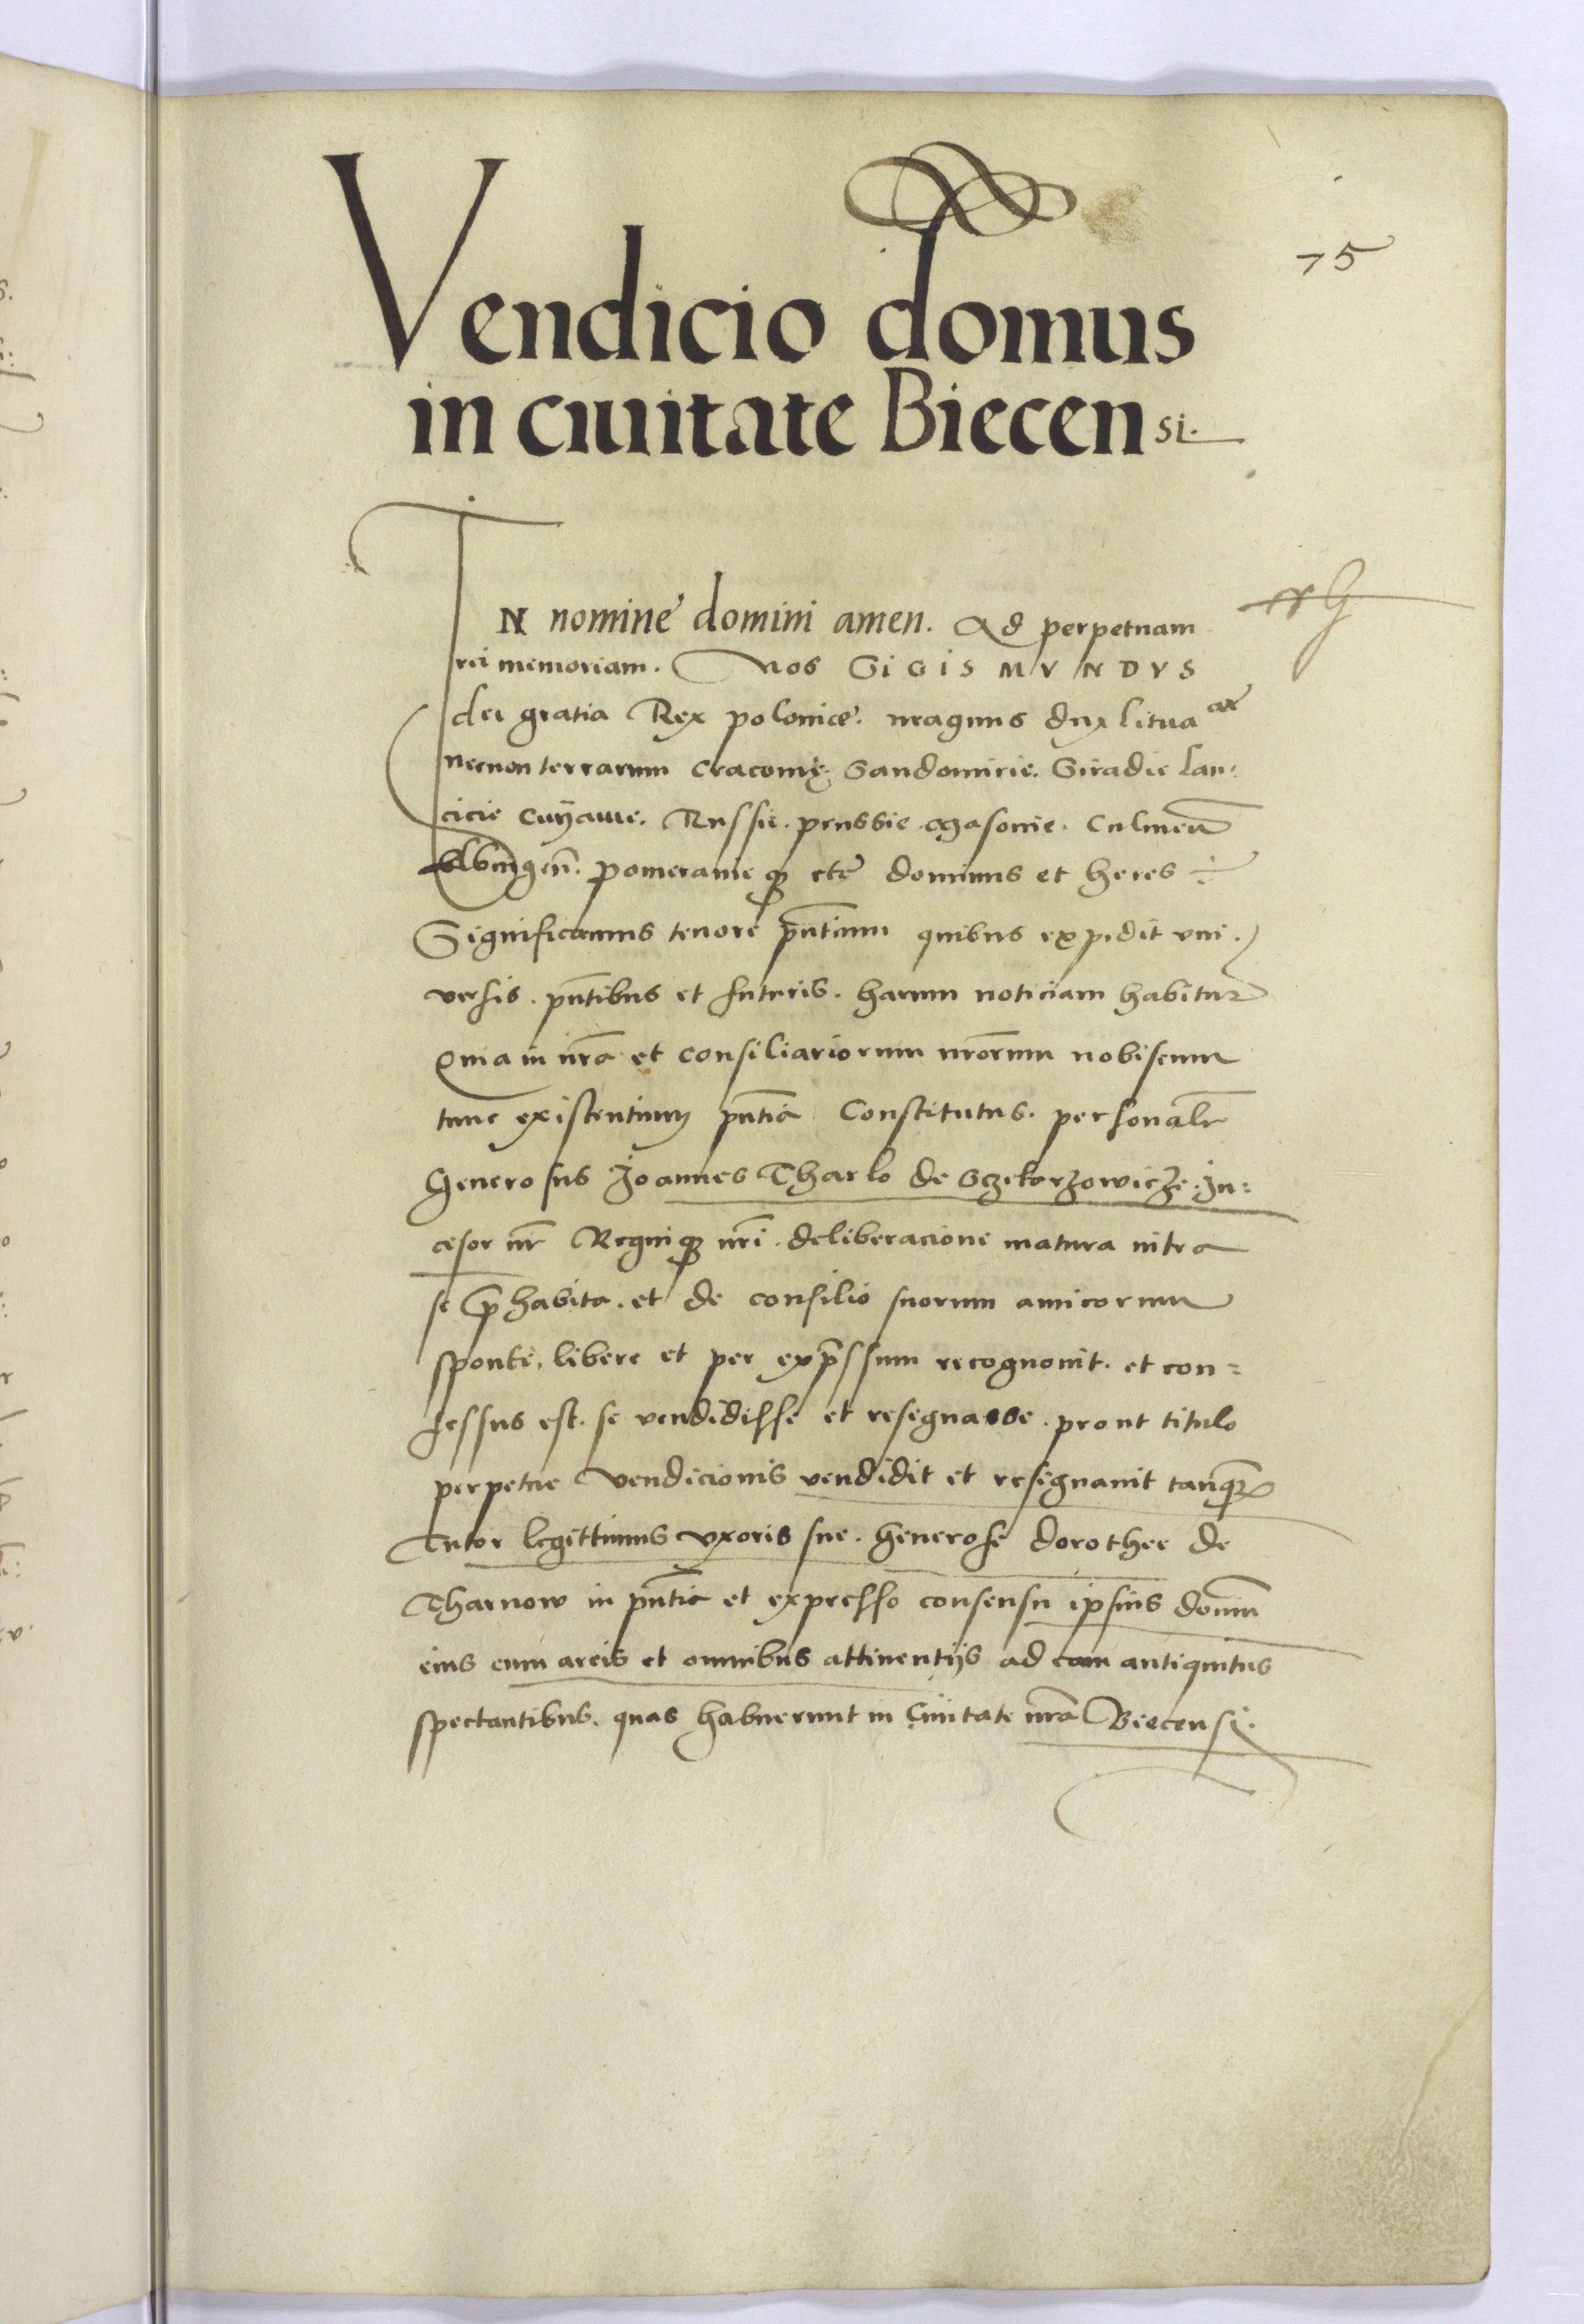 75
Vendicio domus
in ciuitate Biecensi.
IN nomine domini amen. Ad perpetuam
rei memoriam. Nos SIGISMVNDVS
dei gratia Rex poloniæ. magnus dux lituaæ
necnon terrarum cracouię. Sandomirie. Siradie lan:
cicie cuÿauie. Russie. prussie Masouie. Culmen̄
Elbingen̄. pomeranie q3 etc̄ dominus et heres ÷
Significamus tenore pn̄tium quibus expedit vni.
versis. pn̄tibus et futuris. harum noticiam habitur̄
Quia in nr̄a et consiliariorum nr̄orum nobiscum
tunc existentium pn̄tia Constitutus. personalr̄
Generosus Joannes Tharlo de Sczekarzowicze. In:
cisor nr̄ Regniq3 nr̄i. deliberacione matura intra
se p̄habita. et de consilio suorum amicorum
sponte. libere et per exp̄ssum recognouit. et con=
fessus est. se vendidisse et resignasse. prout titulo
perpetue vendicionis vendidit et resignauit tanq̄3
Tutor legittimus vxoris sue. Generose dorothee de
Tharnow in pn̄tia et expresso consensu ipsius domum
eius cum areis et omnibus attinentijs ad eam antiquitus
spectantibus. quas habuerunt in Ciuitate nr̄a Biecensi.